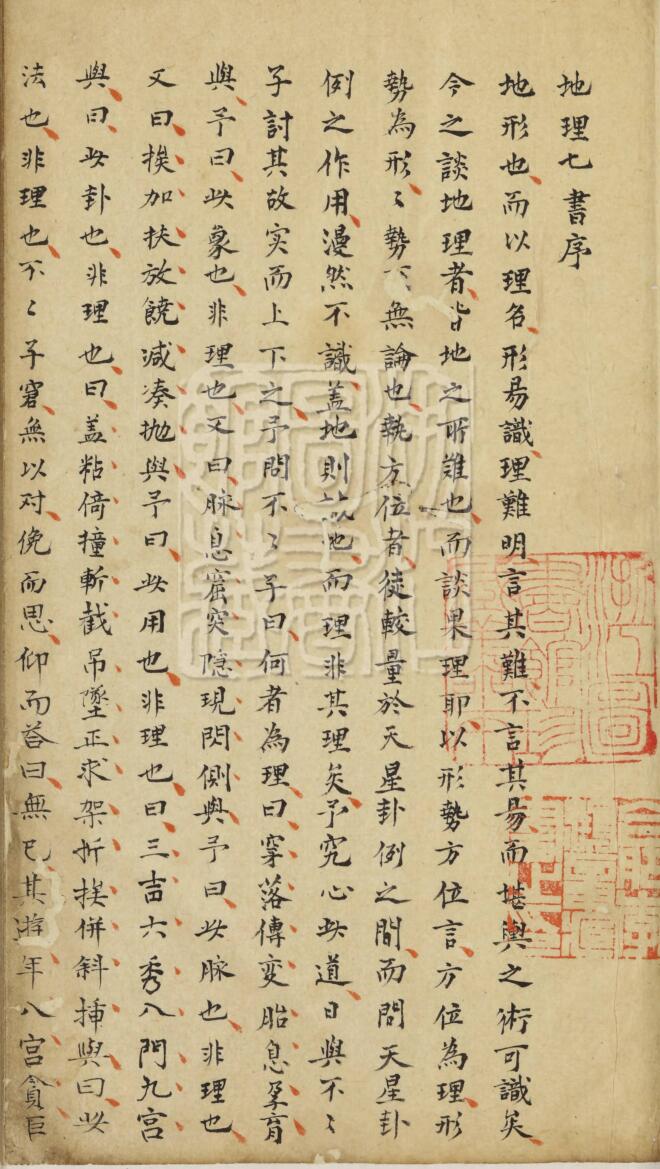 地理七書序
地形也而以理名形易識理難明言其難不言其易而堪輿之術可識矣
今之談地理者皆地之所難也而談果理耶以形勢方位言方位為理形
勢為形〻勢 無論也執方位者徒較量於天星卦例之間而問天星卦
例之作用漫然不識盖地則 地而理非其理矣予究心此道日與不〻
子討其故实而上下之予問不〻子曰何者為理曰穿落傳変胎息孕育
與予曰此象也非理也又曰脉息窟突隐現閃側與予曰此脉也非理也
又曰挨加扶放饒减凑抛與予曰此用也非理也曰三吉六秀八門九宮
與曰此卦也非理也曰盖粘倚撞斬截吊墜正求架折挨併斜揷與曰此
法也非理也不〻子窘無以对俛而思仰而荅曰無已其遊年八宮貪巨